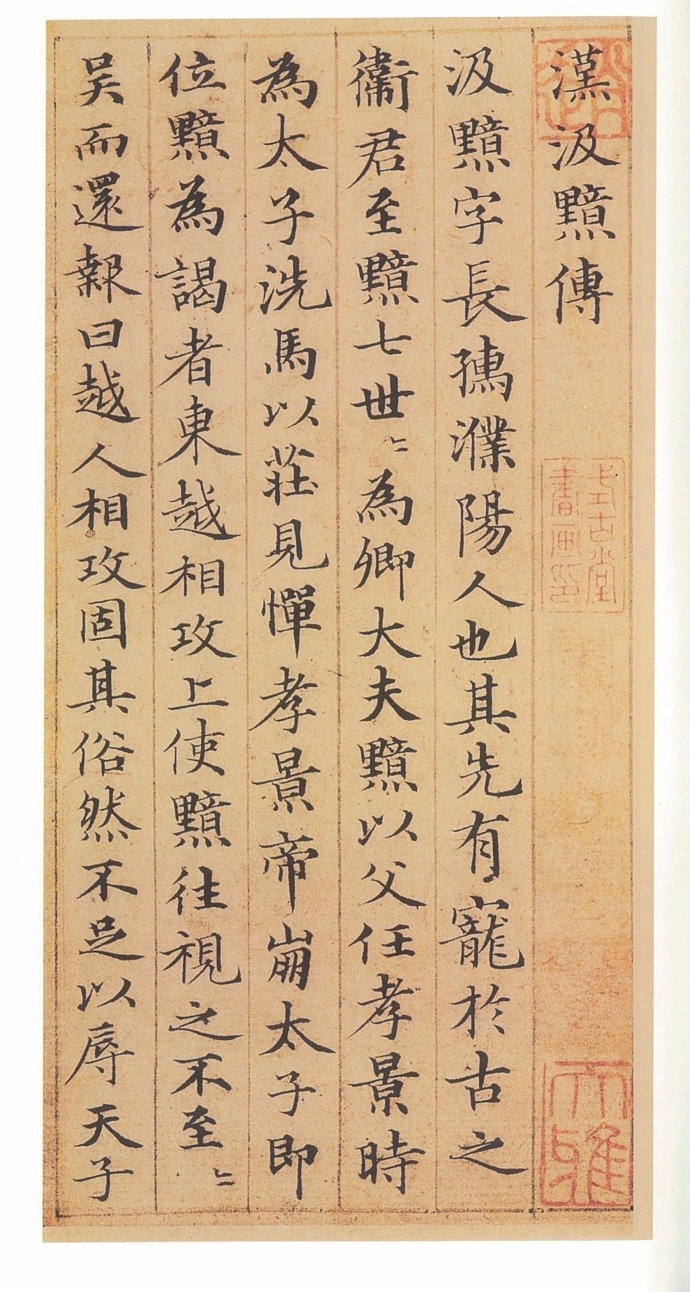 漢汲黯傳
汲黯字長孺濮陽人也其先有寵於古之
衞君至黯七世〻為卿大夫黯以父任孝景時
為太子洗馬以莊見憚孝景帝崩太子即
位黯為謁者東越相攻上使黯往視之不至〻
吳而還報曰越人相攻固其俗然不足以辱天子
式古堂
書畫印
大雅